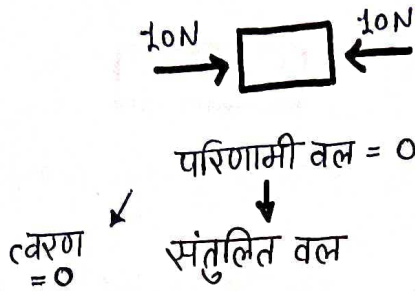 10N 10N
परिणामी वल = 0
त्वरण संतुलित वल
= 0